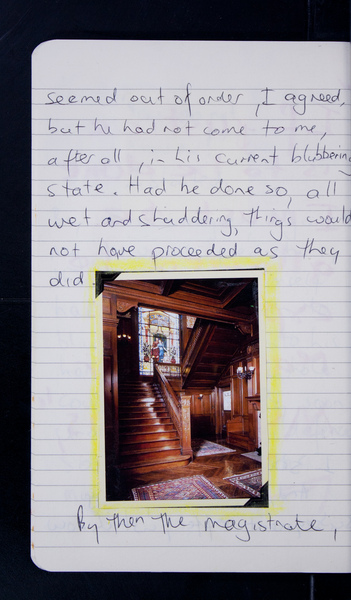 seemed out of order, I agreed,
but he had not come to me,
after all, in his current blubbering
state. Had he done so, all
wet and shuddering, things would
not have proceeded as they
did
By then the magistrate,